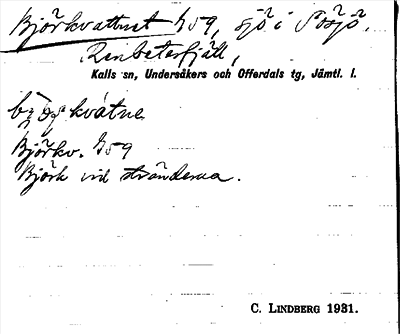 Björkvattnet 759, sjö i Sösjö,
Renbetesfjäll,
Kalls sn, Undersåkers och Offerdals tg, Jämtl. l.
kvátne
Björkv. 759
Björk vid stränderna.
C. LINDBERG 1931.